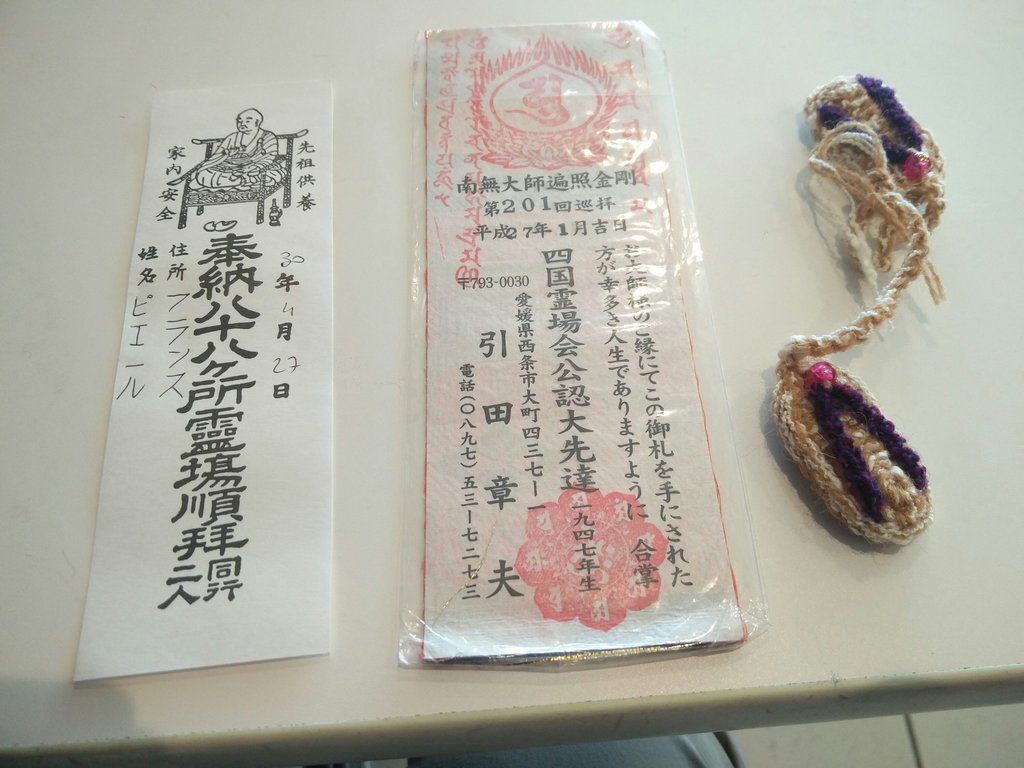 先祖供養
家内安全
奉納八十八ケ所霊場順拝同行二人
30年4月27日
住所 フランス
姓名 ピエール
南無大師遍照金剛
第201回巡拝
平成27年1月吉日
お大師様のご縁にてこの御札を手にされた
方が幸多き人生でありますように 合掌
四国霊場会公認大先達 一九四七年生
〒793-0030
愛媛県西条市大町四三七ー一
引田章夫
電話(〇八九七)五三ー七二七三